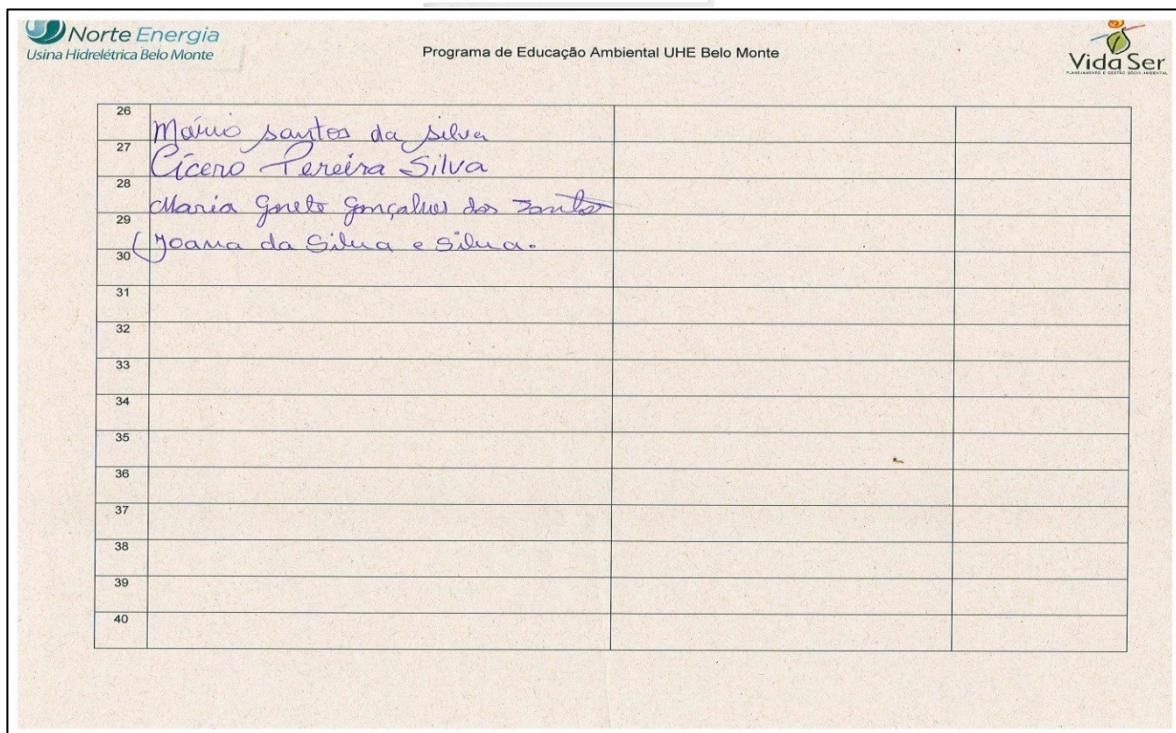 Norte Energia
Usina Hidrelétrica Belo Monte
Programa de Educação Ambiental UHE Belo Monte
Vida Ser
PLANEJAMENTO E GESTÃO SÓCIO AMBIENTAL
26 Mário santos da silva
27 Cícero Pereira Silva
28 Maria Gorete Gonçalves dos Santos
29 Joana da Silva e Silva.
30
31
32
33
34
35
36
37
38
39
40